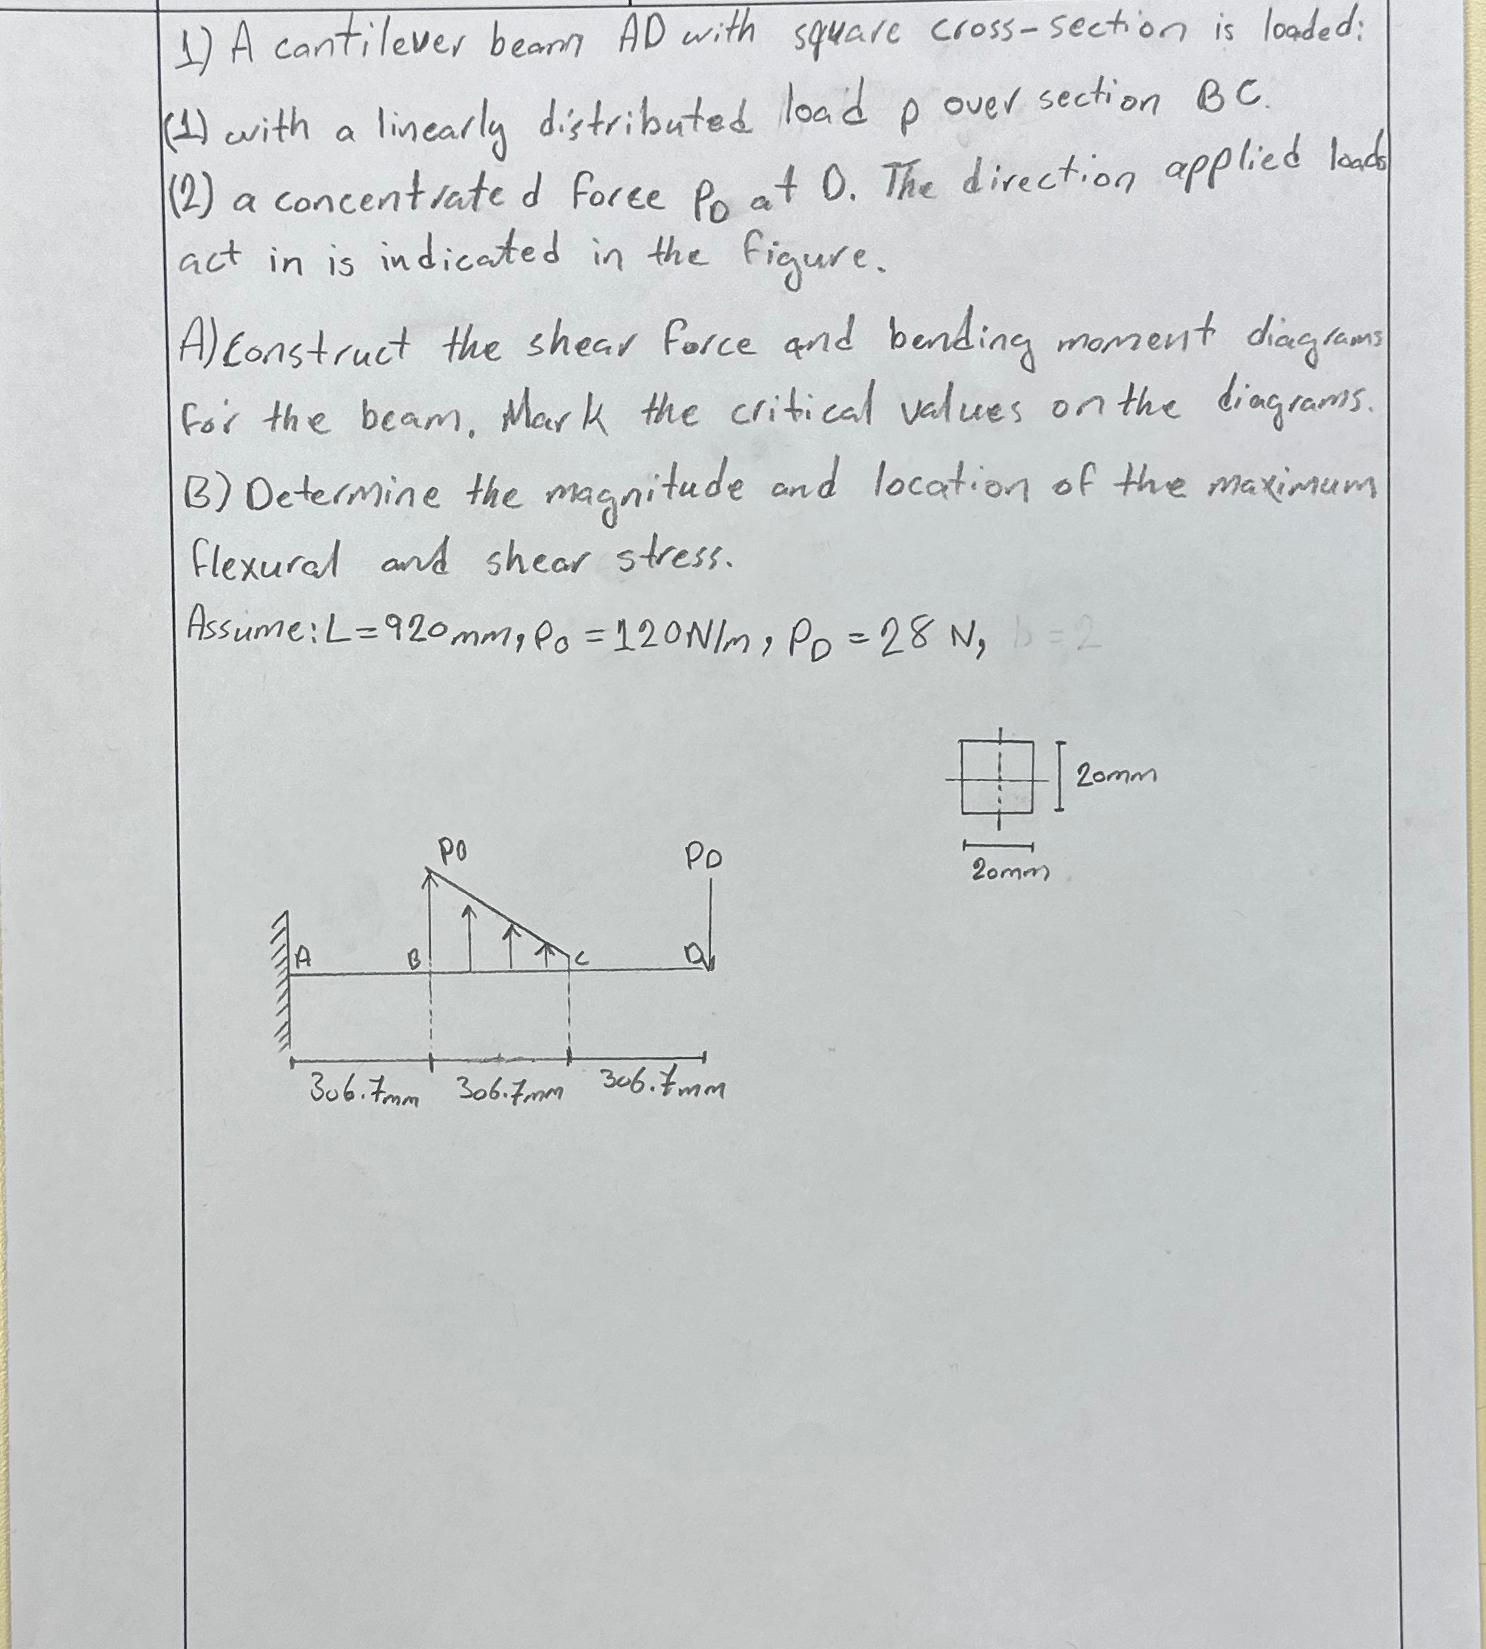 1) A cantilever beam AD with square cross-section is loaded:
(1) with a linearly distributed load p over section BC.
(2) a concentrated force PD at D. The direction applied loads
act in is indicated in the figure.
A) Construct the shear force and bending moment diagrams
for the beam. Mark the critical values on the diagrams.
B) Determine the magnitude and location of the maximum
flexural and shear stress.
Assume: L=920mm, P0 = 120N/m, PD = 28 N, b = 2
20mm
20mm
P0
PD
A
B
C
D
306.7mm
306.7mm
306.7mm